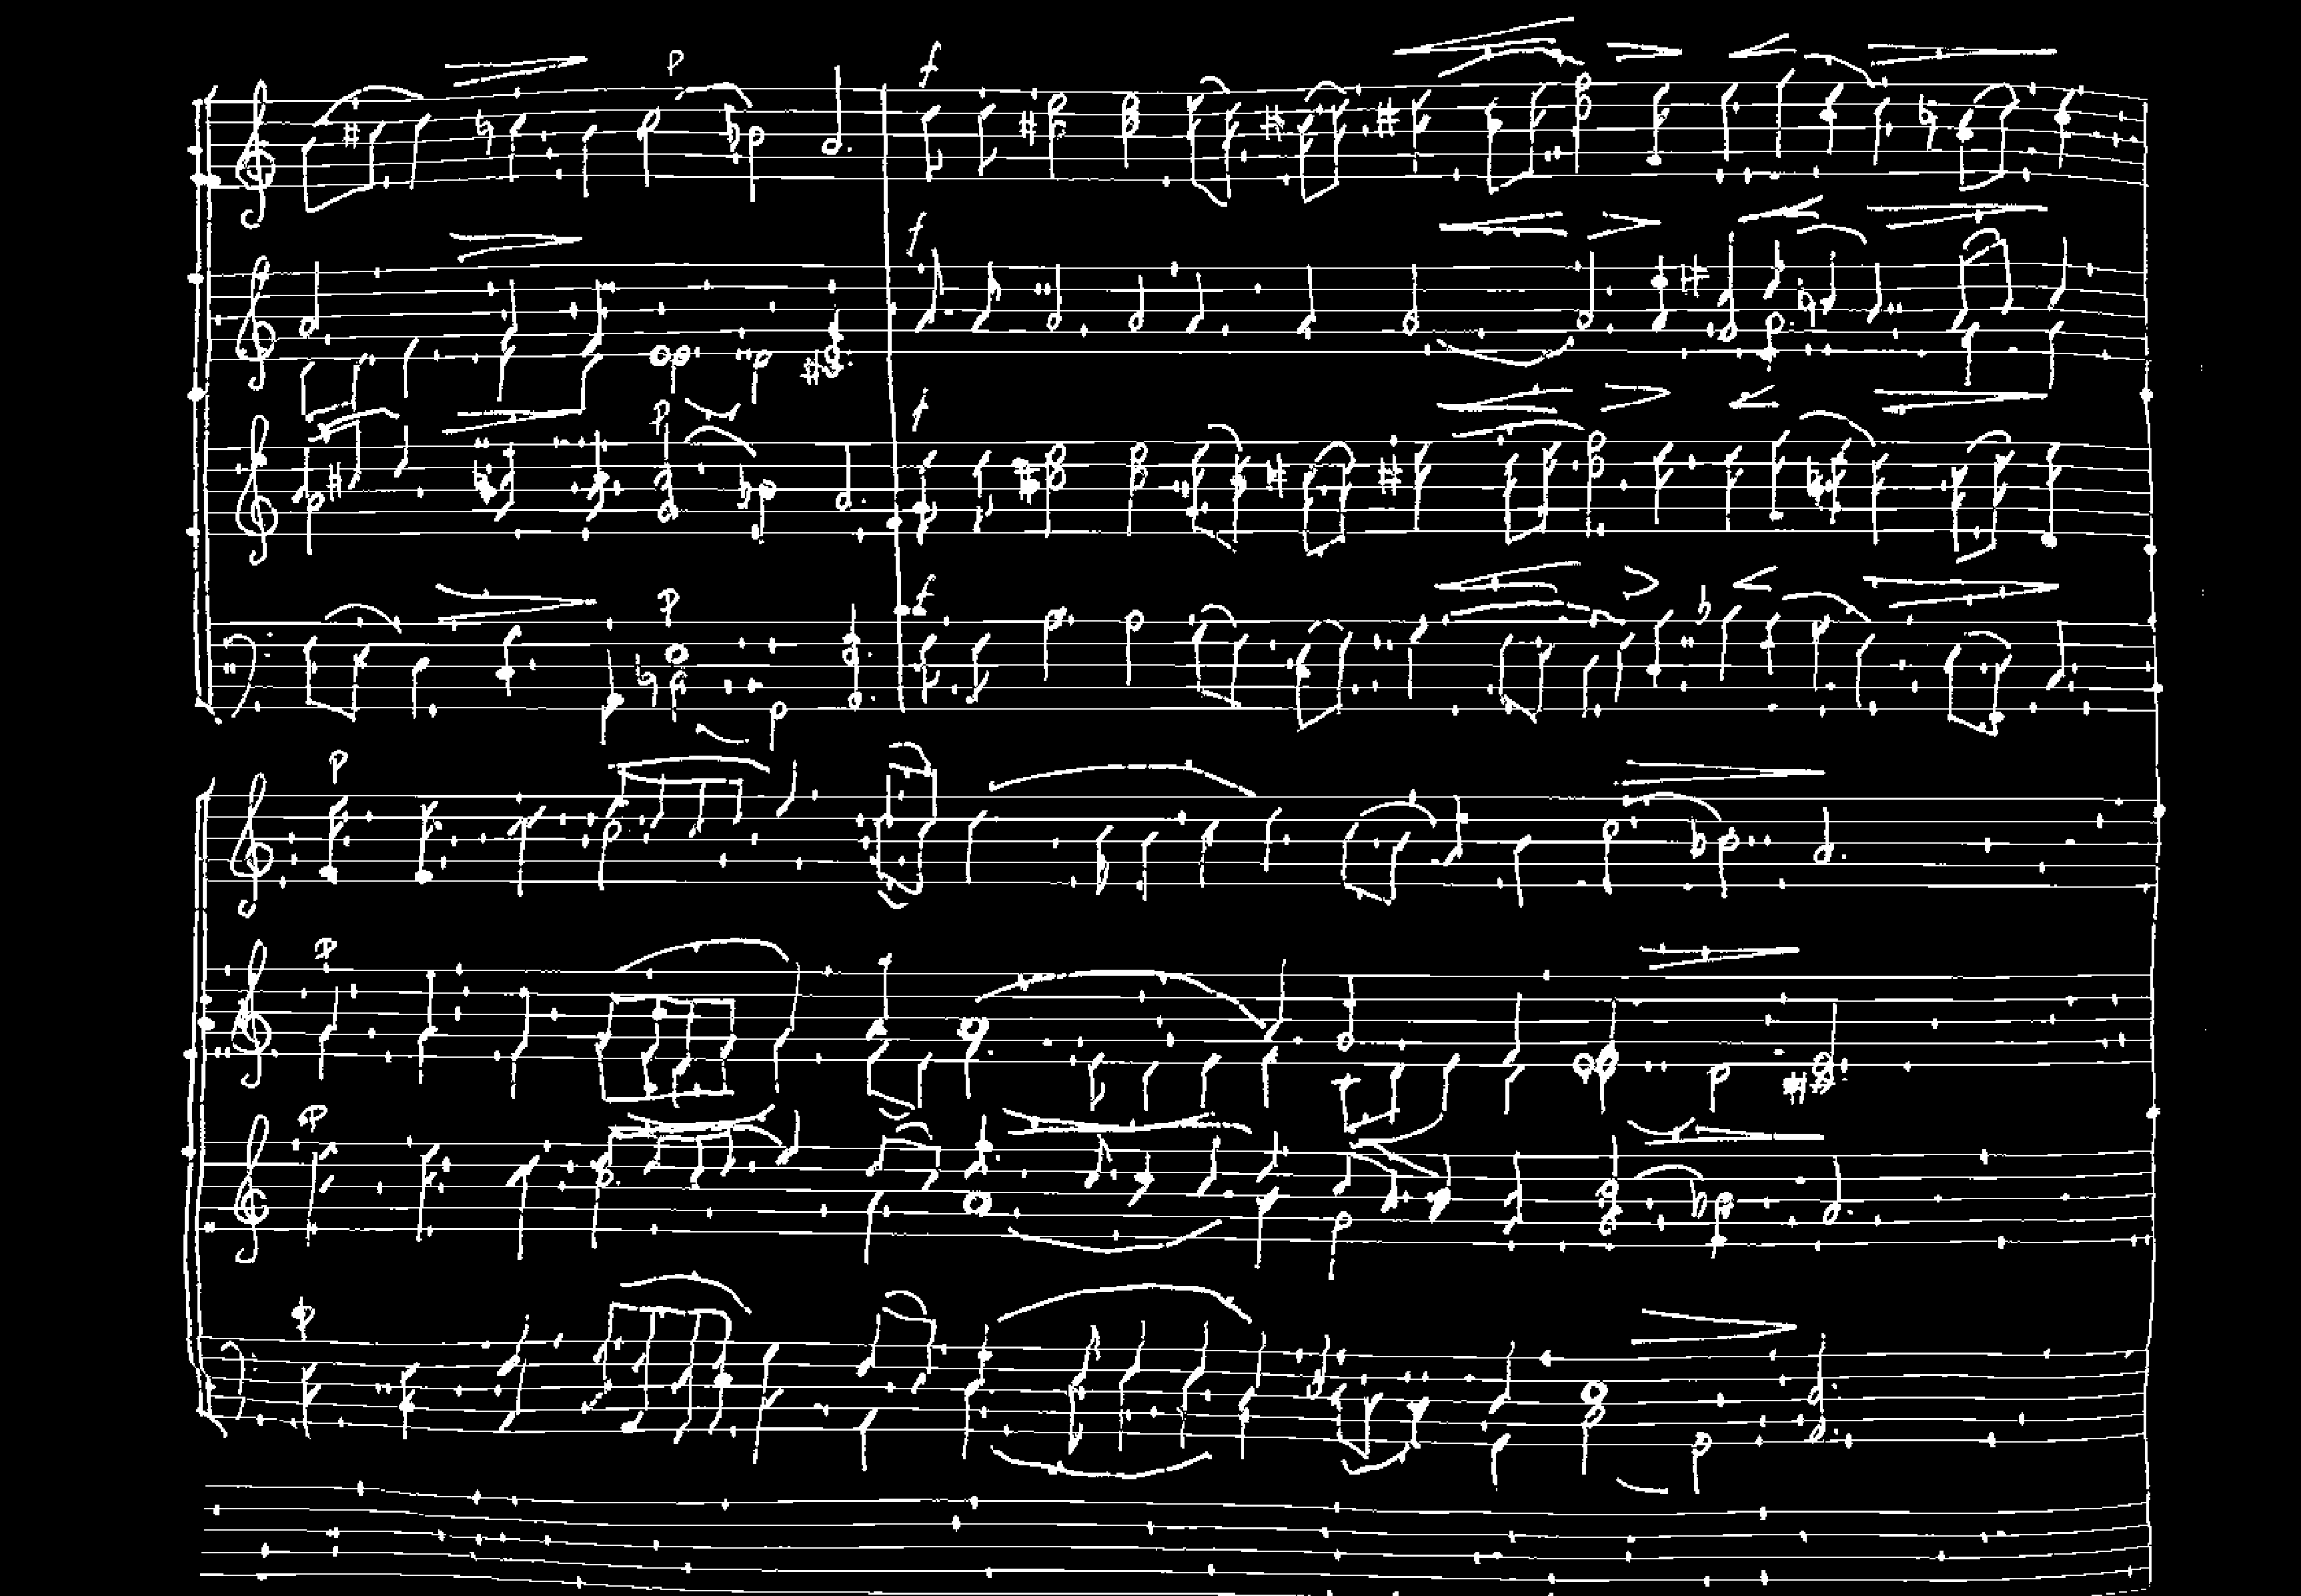 p f
f
p f
p f
p
p
p
p